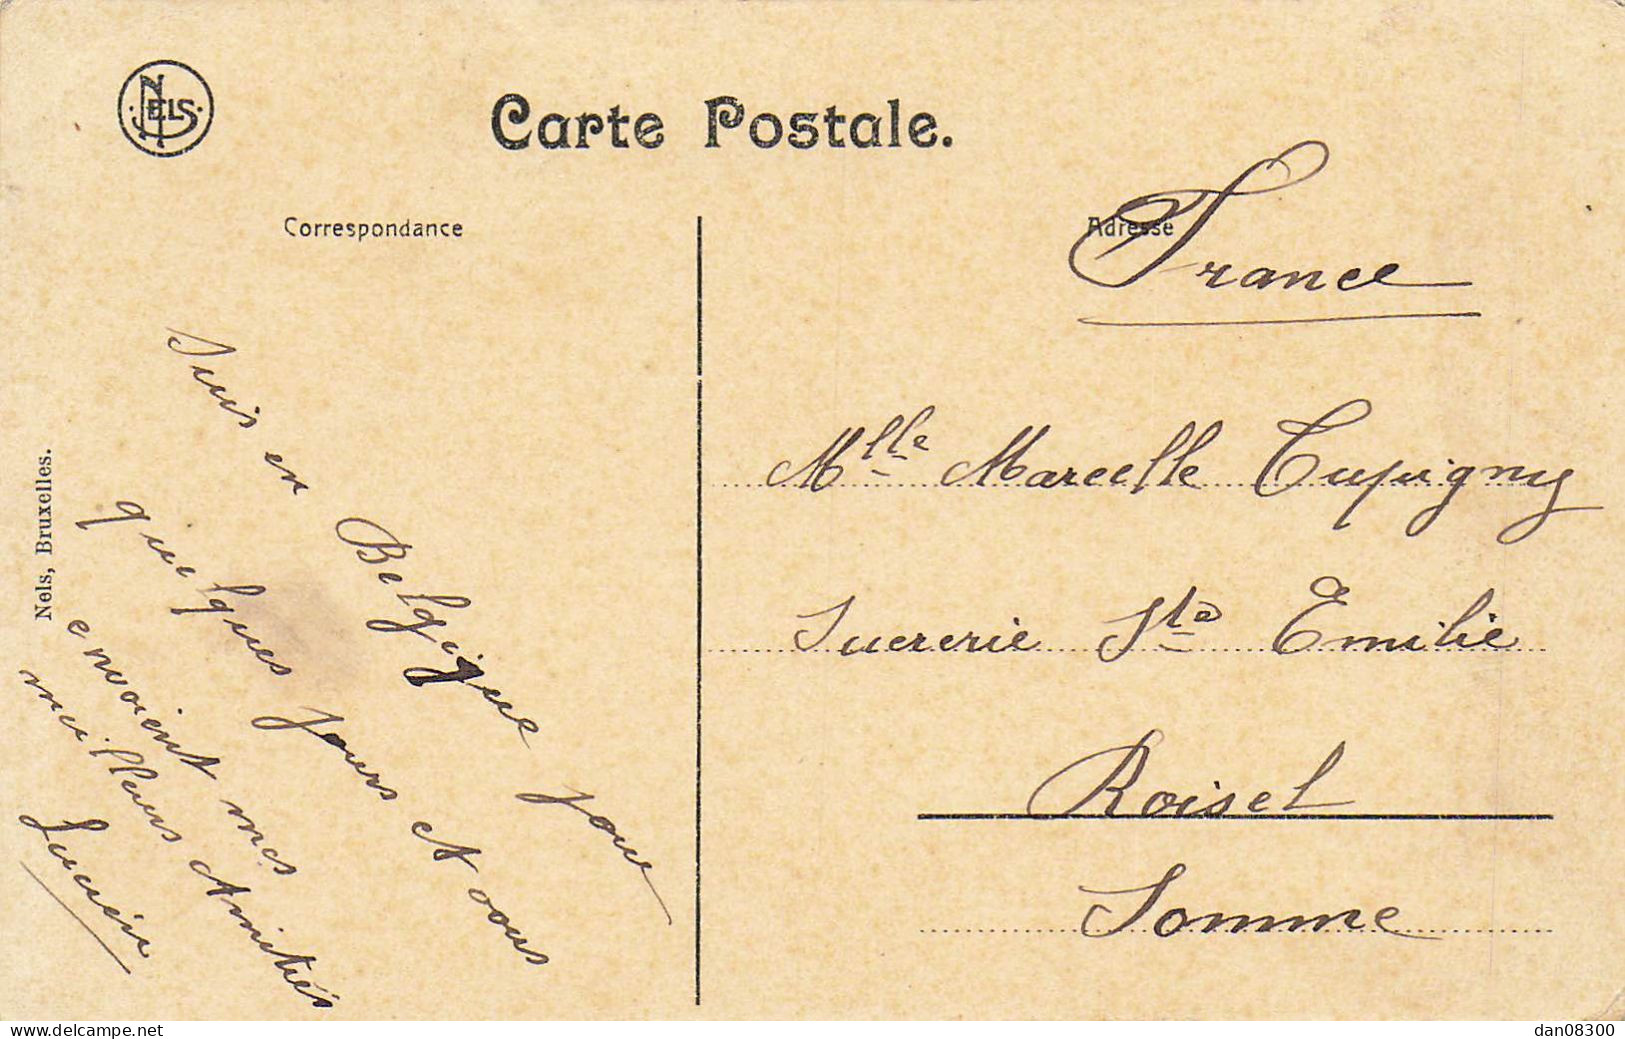 NELS
Carte Postale.
Correspondance
Adresse
France
Suis en Belgique pour
quelques jours et vous
envoient mes
meilleurs Amitiés
Lucien
Nels, Bruxelles.
Mlle Marcelle Cupigny
Sucrerie Ste Emilie
Roisel
Somme
www.delcampe.net
dan08300